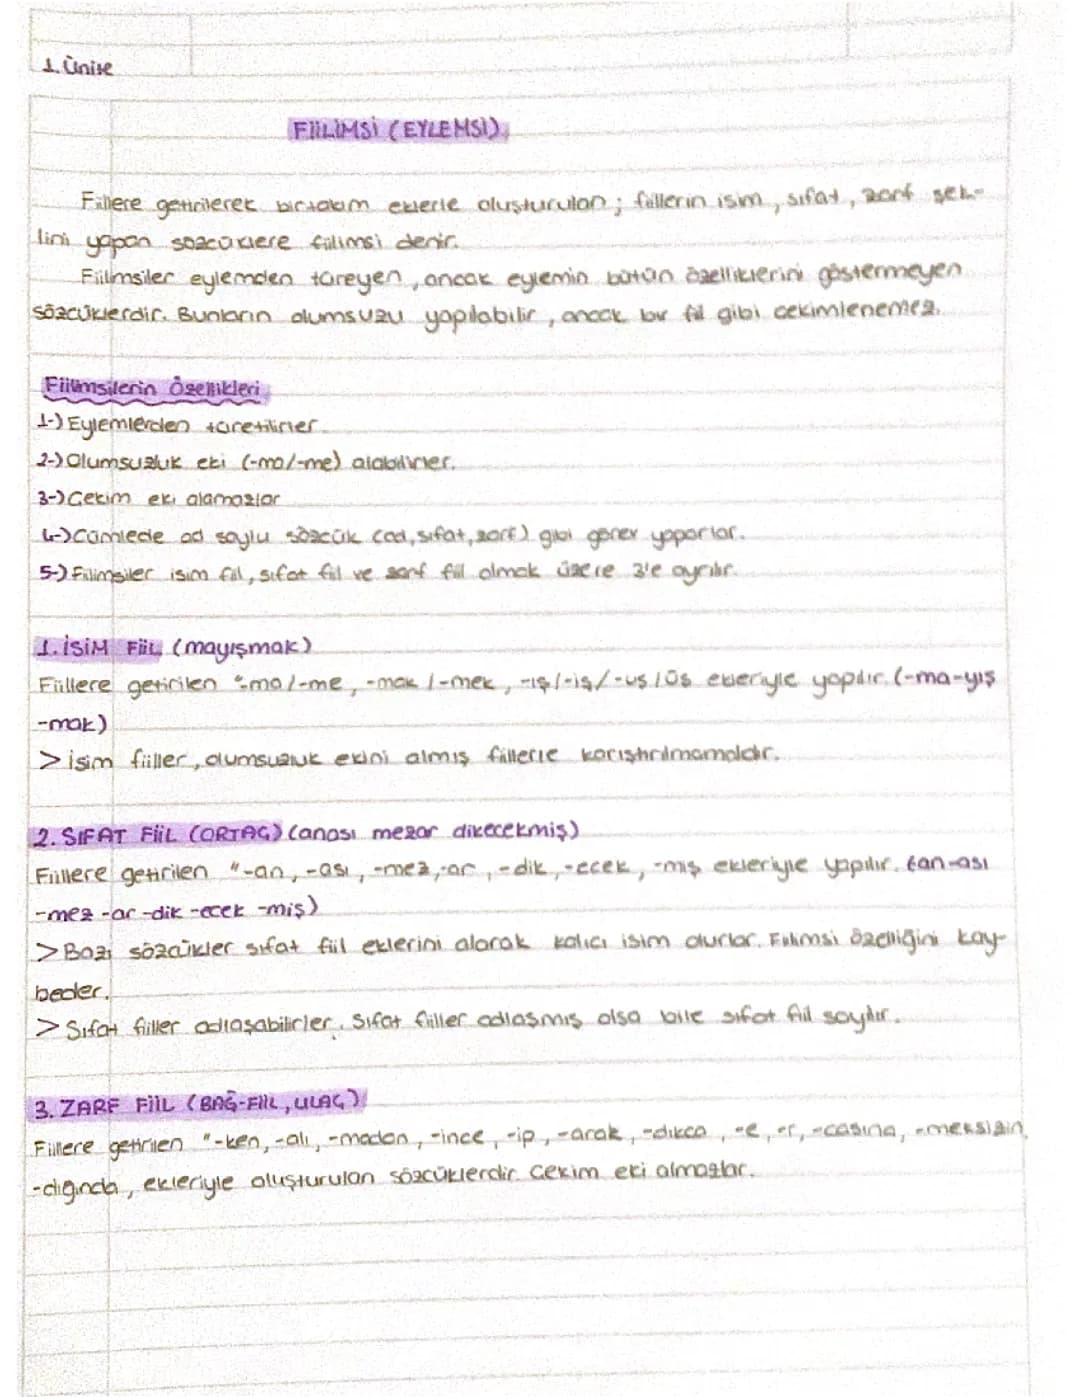 1. Ünite
FİİLİMSİ (EYLEMSİ)
Fiillere getirilerek birtakım eklerle oluşturulan; fiillerin isim, sıfat, zarf şek-
lini yapan sözcüklere fiilimsi denir.
Fiilmsiler eylemden türeyen, ancak eylemin bütün özelliklerini göstermeyen
sözcüklerdir. Bunların olumsuzu yapılabilir, ancak bir fiil gibi çekimlenemez.
Fiilimsilerin Özellikleri
1-) Eylemlerden türetilirler.
2-) Olumsuzluk eki (-ma/-me) alabilirler.
3-) Çekim eki alamazlar
4-) Cümlede ad soylu sözcük (ad, sıfat, zarf) gibi görev yaparlar.
5-) Fiilimsiler isim fiil, sıfat fiil ve zarf fiil olmak üzere 3'e ayrılır.
1. İSİM FİİL (mayışmak)
Fiillere getirilen "-ma/-me, -mak/-mek, -ış/-iş/-uş/üş ekleriyle yapılır. (-ma-yış
-mak)
> İsim fiiller, olumsuzluk ekini almış fiillerle karıştırılmamalıdır.
2. SIFAT FİİL (ORTAÇ) (anası mezar dikecekmiş)
Fiillere getirilen "-an, -ası, -mez, -ar, -dik, -ecek, -miş ekleriyle yapılır. (an-ası
-mez -ar -dik -ecek -miş)
> Bazı sözcükler sıfat fiil eklerini alarak kalıcı isim olurlar. Fiilimsi özelliğini kay-
beder.
> Sıfat fiiller adlaşabilirler. Sıfat fiiller adlaşmış olsa bile sıfat fiil sayılır.
3. ZARF FİİL (BAĞ-FİİL, ULAÇ)
Fiillere getirilen "-ken, -alı, -madan, -ince, -ip, -arak, -dıkça, -e, -r, -casına, -meksizin,
-dığında, ekleriyle oluşturulan sözcüklerdir. Çekim eki almazlar.